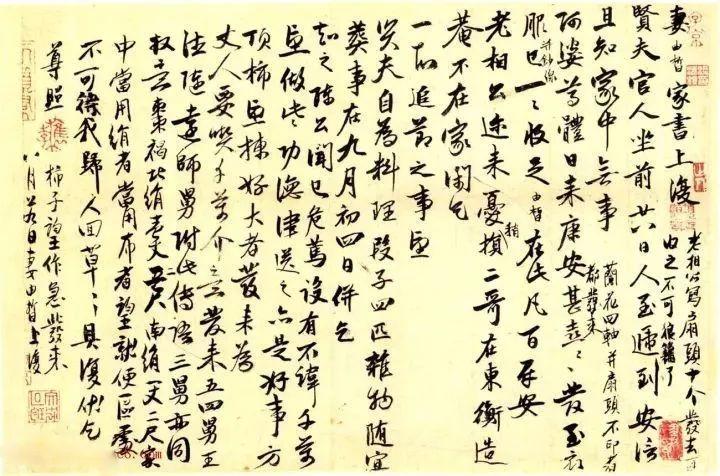 妻由晢家書上復
賢夫官人坐前廿八日人至遞到安信
且知家中無事
阿婆尊體日來康安甚喜〻發至衣
服 并鈔線 已一一收足由晢在此凡百平安
老相公迩來稍憂損二哥在東衡造
菴不在家閑乞
追薦之事
賢夫自為料理段子四匹雜物隨宜
葬事在九月初四日併乞
知之陸公聞已危篤設有不諱千萬
做些功德津送之亦是好事方
頂柿揀好大者發來為
丈人要喫千萬發來五四舅王
法陸遠師舅附此傳語三舅亦同
褐北絹壹 南絹一丈二尺
中當用絹者當用布者就便區處
不可待我歸人回草〻具復伏乞
尊照 柿子作急發來
八月廿九日妻由晢上復
蘭花四軸并扇頭不印者
都發來
老相公寫扇頭十个發去
由之不可了